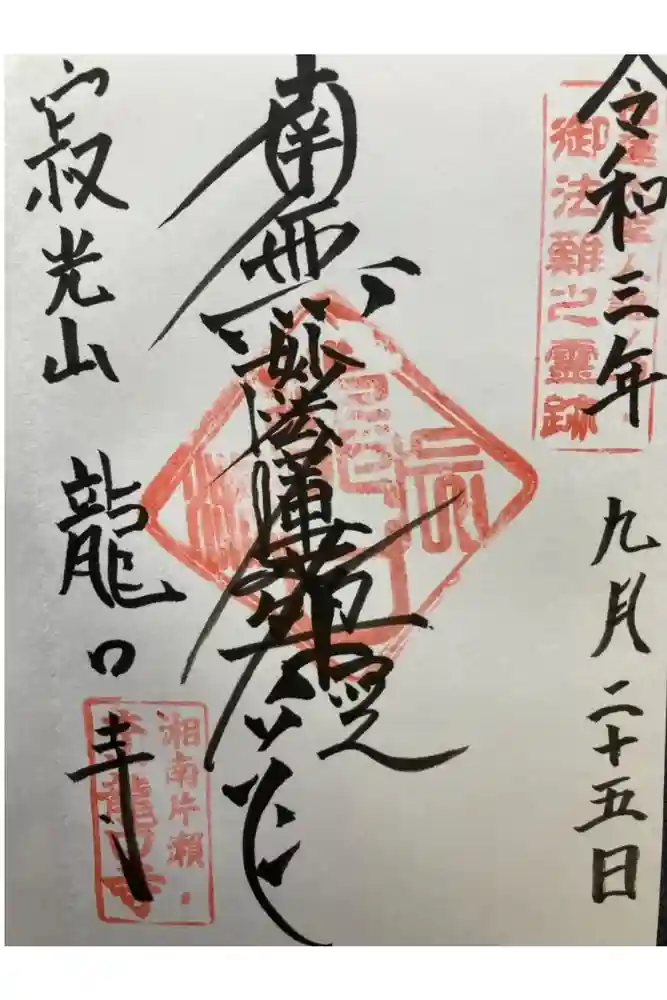 令和三年 九月二十五日
御法難之靈跡
南無妙法蓮華経
寂光山 龍口寺
湘南片瀬
龍口寺